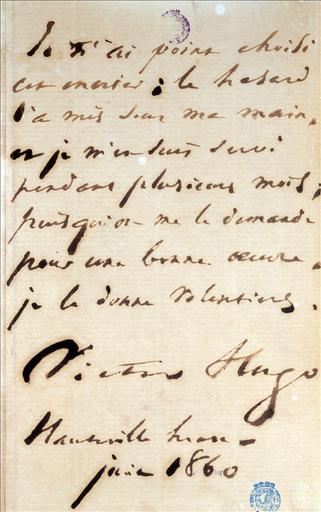 Je n'ai point choisi
cet encrier ; le hasard
l'a mis sous ma main,
et je m'en suis servi
pendant plusieurs mois ;
puisqu'on me le demande
pour une bonne œuvre,
je le donne volontiers.
Victor Hugo
Hauteville house –
juin 1860